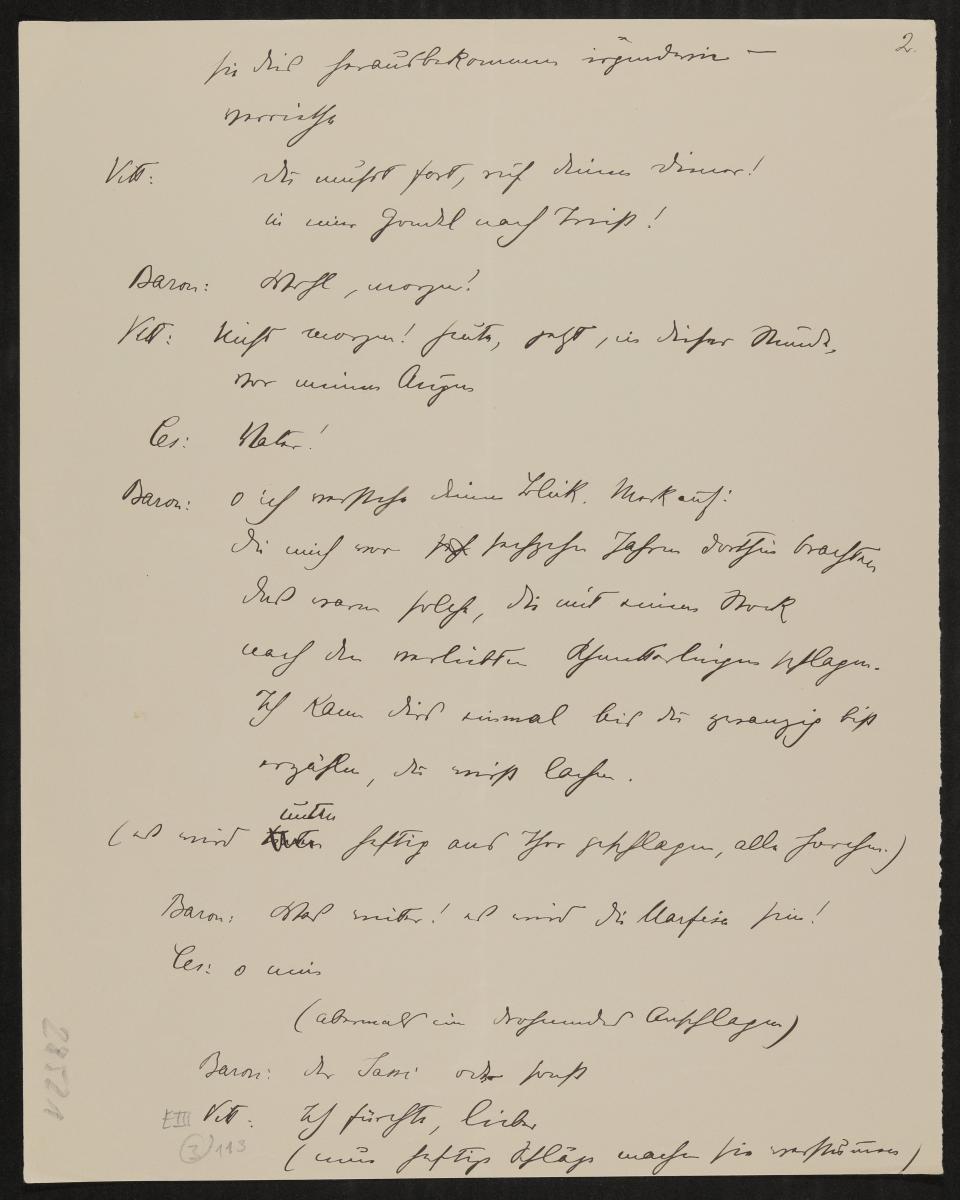 2.
sie dies herausbekommen irgendwie —
verriethe
Vitt: du musst fort, ruf deinen Diener!
in einer Gondel nach Triest!
Baron: Wohl, morgen!
Vitt: Nicht morgen! heute, jetzt, in dieser Stunde,
vor meinen Augen
Ces: Vater!
Baron: o ich verstehe deinen Blick. Merk auf:
die mich vor sechzehn Jahren dorthin brachten
das waren solche, die mit einem Stock
nach den verliebten Schmetterlingen schlagen.
Ich kann dirs einmal bis du zwanzig bist
erzählen, du wirst lachen.
unten
(es wird heftig ans Thor geschlagen, alle horchen.)
Baron: Was weiter! es wird die Marfisa sein!
Ces: o nein
(abermals ein drohendes Anschlagen)
Baron: der Sassi oder sonst
Vitt: Ich fürchte, lieber
(neue heftige Schläge machen sie verstummen)
E III
3 113
28521